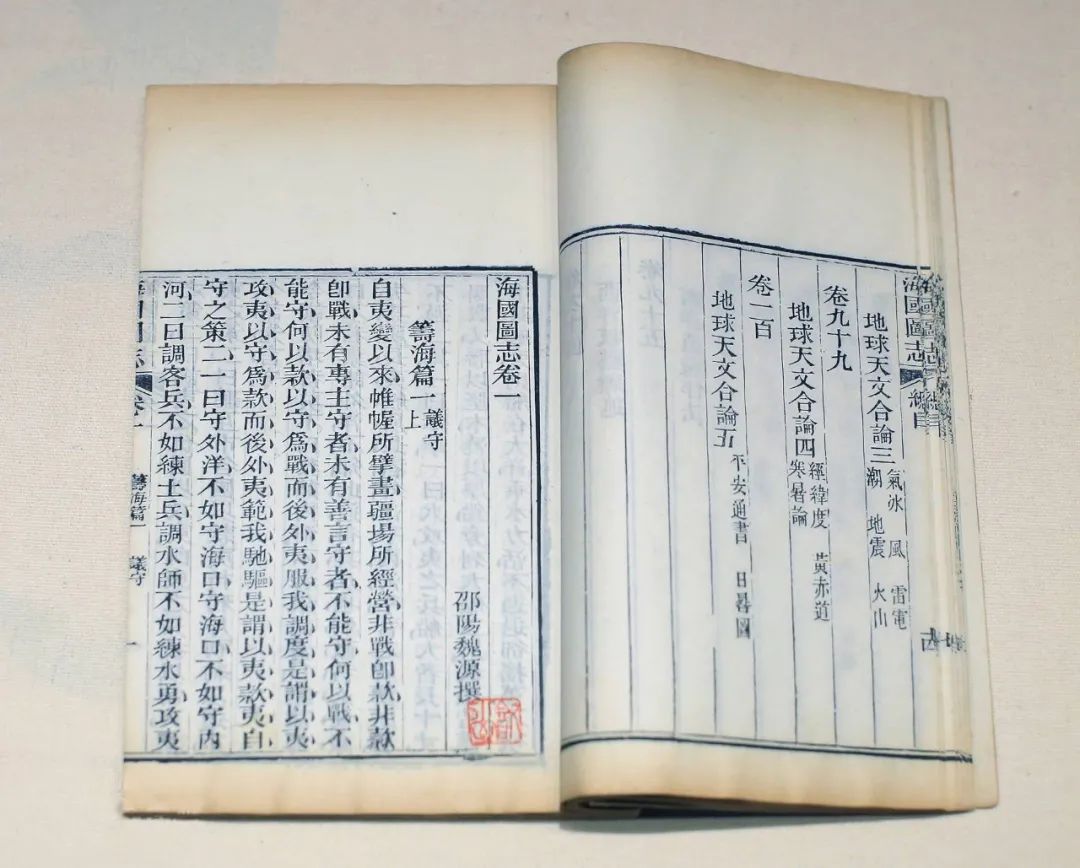 海國圖志
地球天文合論三 氣冰 風 雷電
潮 地震 火山
卷九十九
地球天文合論四 經緯度 黃赤道
寒暑論
卷一百
地球天文合論五 平安通書 日晷圖
海國圖志卷一
邵陽魏源撰
籌海篇一 議守
上
自夷變以來帷幄所擘畫疆場所經營非戰卽款非款
卽戰未有專主守者未有善言守者不能守何以戰不
能守何以款以守爲戰而後外夷服我調度是謂以夷
攻夷以守爲款而後外夷範我馳驅是謂以夷款夷自
守之策二一曰守外洋不如守海口守海口不如守內
河二曰調客兵不如練土兵調水師不如練水勇攻夷
卷一 籌海篇一 議守 一